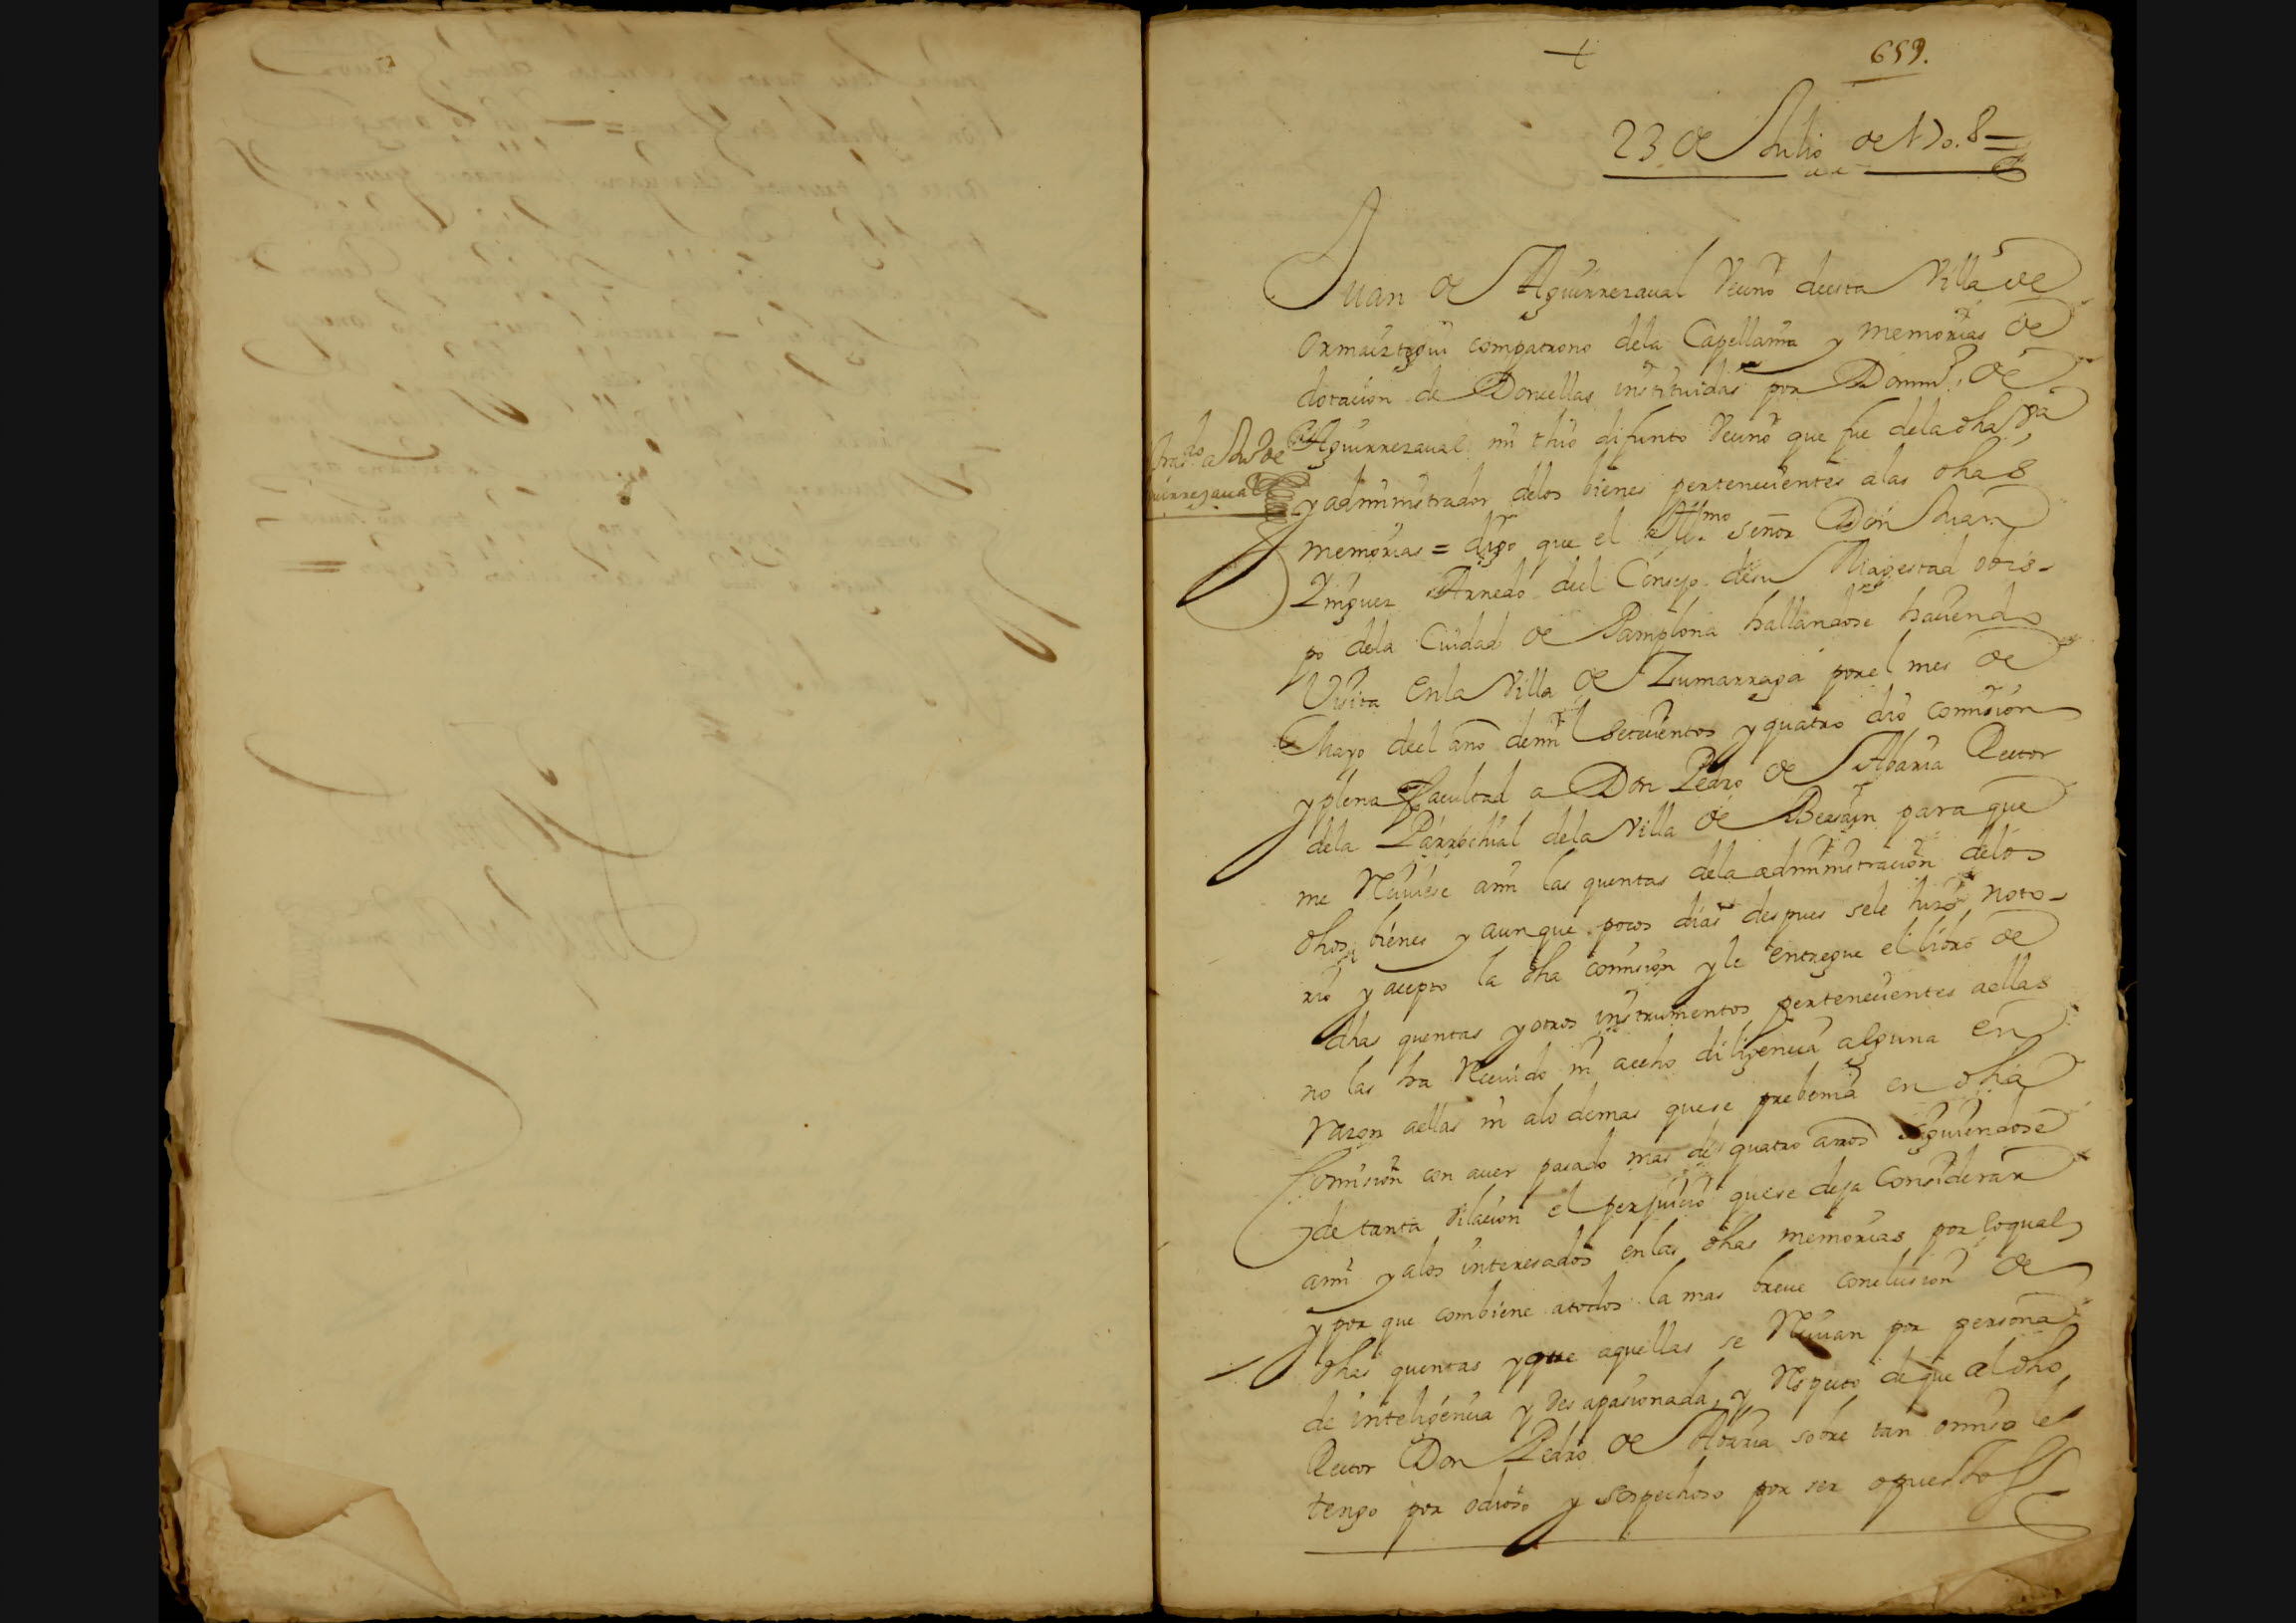 659.
23 de Julio de 170.8=
Juan de Aguirrezaual Vecino de esta Villa de
Ormaiztegui compatrono dela Capellania y memorias de
dotacion de Doncellas instituidas por Domin.º de
Aguirrezaual mi thio difunto Vecino que fue dela dha Vª
y administrador delos bienes pertenecientes alas dhas
memorias = digo que el Illmo señor Don Juan
Yñiguez Arnedo deel Consejo desu Magestad obis-
po dela Ciudad de Pamplona hallandose haciendo
Visita enla Villa de Zumarraga porel mes de
Mayo deel año demil Setecientos y quatro dio comision
y plena facultad a Don Pedro de Abaria Rector
dela Parrochial dela Villa de Beasayn para que
me Reciuiese ami las quentas dela administracion delos
dhos bienes y aunque pocos dias despues sele hizo noto-
rio y acepto la dha comision y le entregue el libro de
dhas quentas y otros instrumentos pertenecientes aellas
no las ha Reciuido ni aecho diligencia alguna en
razon aellas ni alo demas quese prebenia en dha
Comision con auer pasado mas de quatro años siguiendose
de tanta dilacion el perjuicio quese deja Considerar
ami y alos interesados enlas dhas memorias por loqual
y por que combiene atodos la mas breue conclusion de
dhas quentas y que aquellas se Reciuan por persona
de inteligencia y desapasionada, y Respecto de que al dho
Rector Don Pedro de Abaria sobre tan omiso le
tengo por odioso y sospechoso por ser opuesto